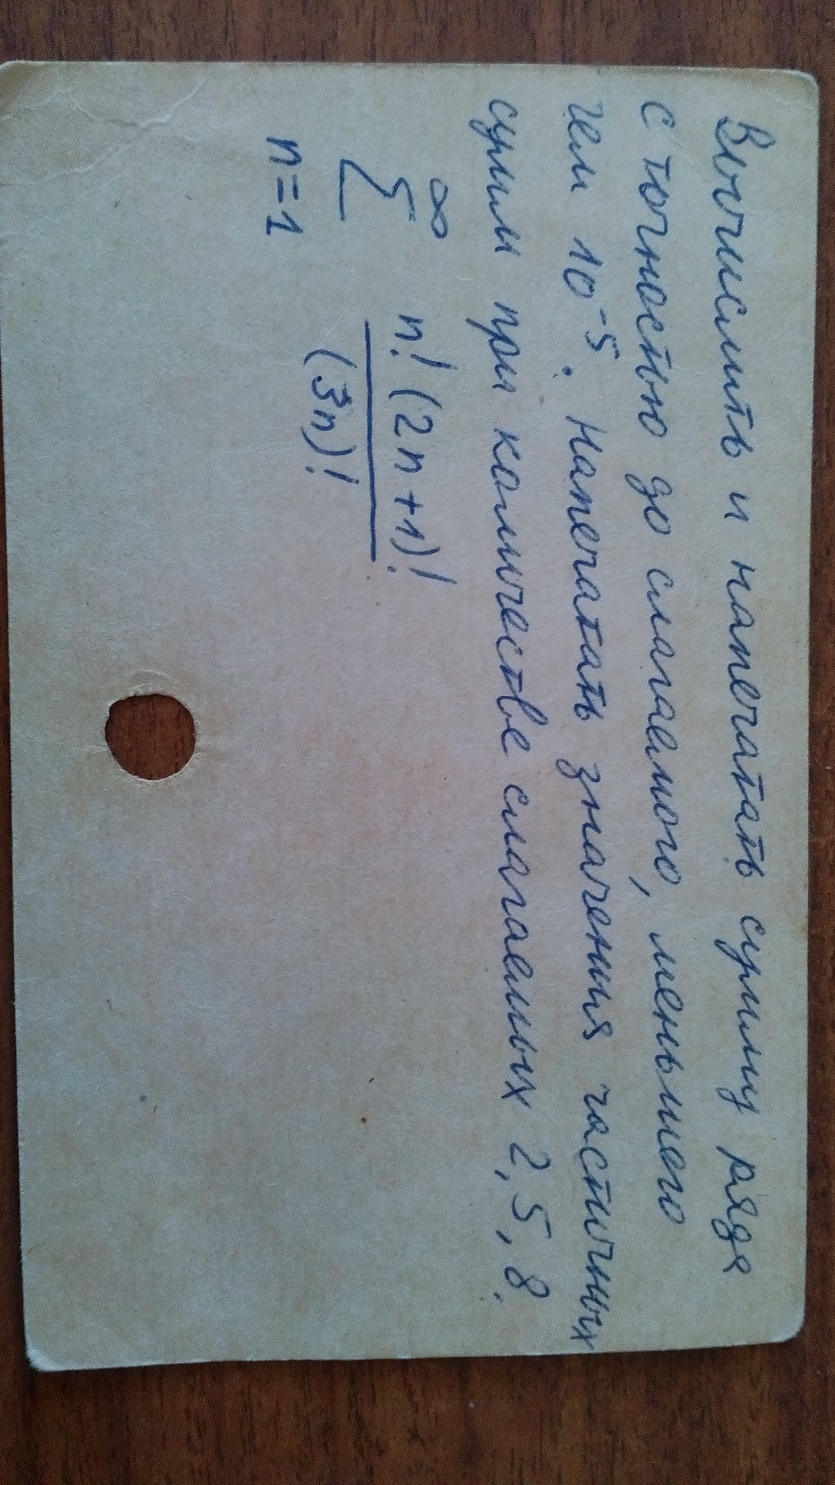 Вычислить и напечатать сумму ряда
с точностью до слагаемого, меньшего
чем 10⁻⁵. Напечатать значения частичных
сумм при количестве слагаемых 2, 5, 8.
∞
Σ n! (2n+1)! / (3n)!
n=1